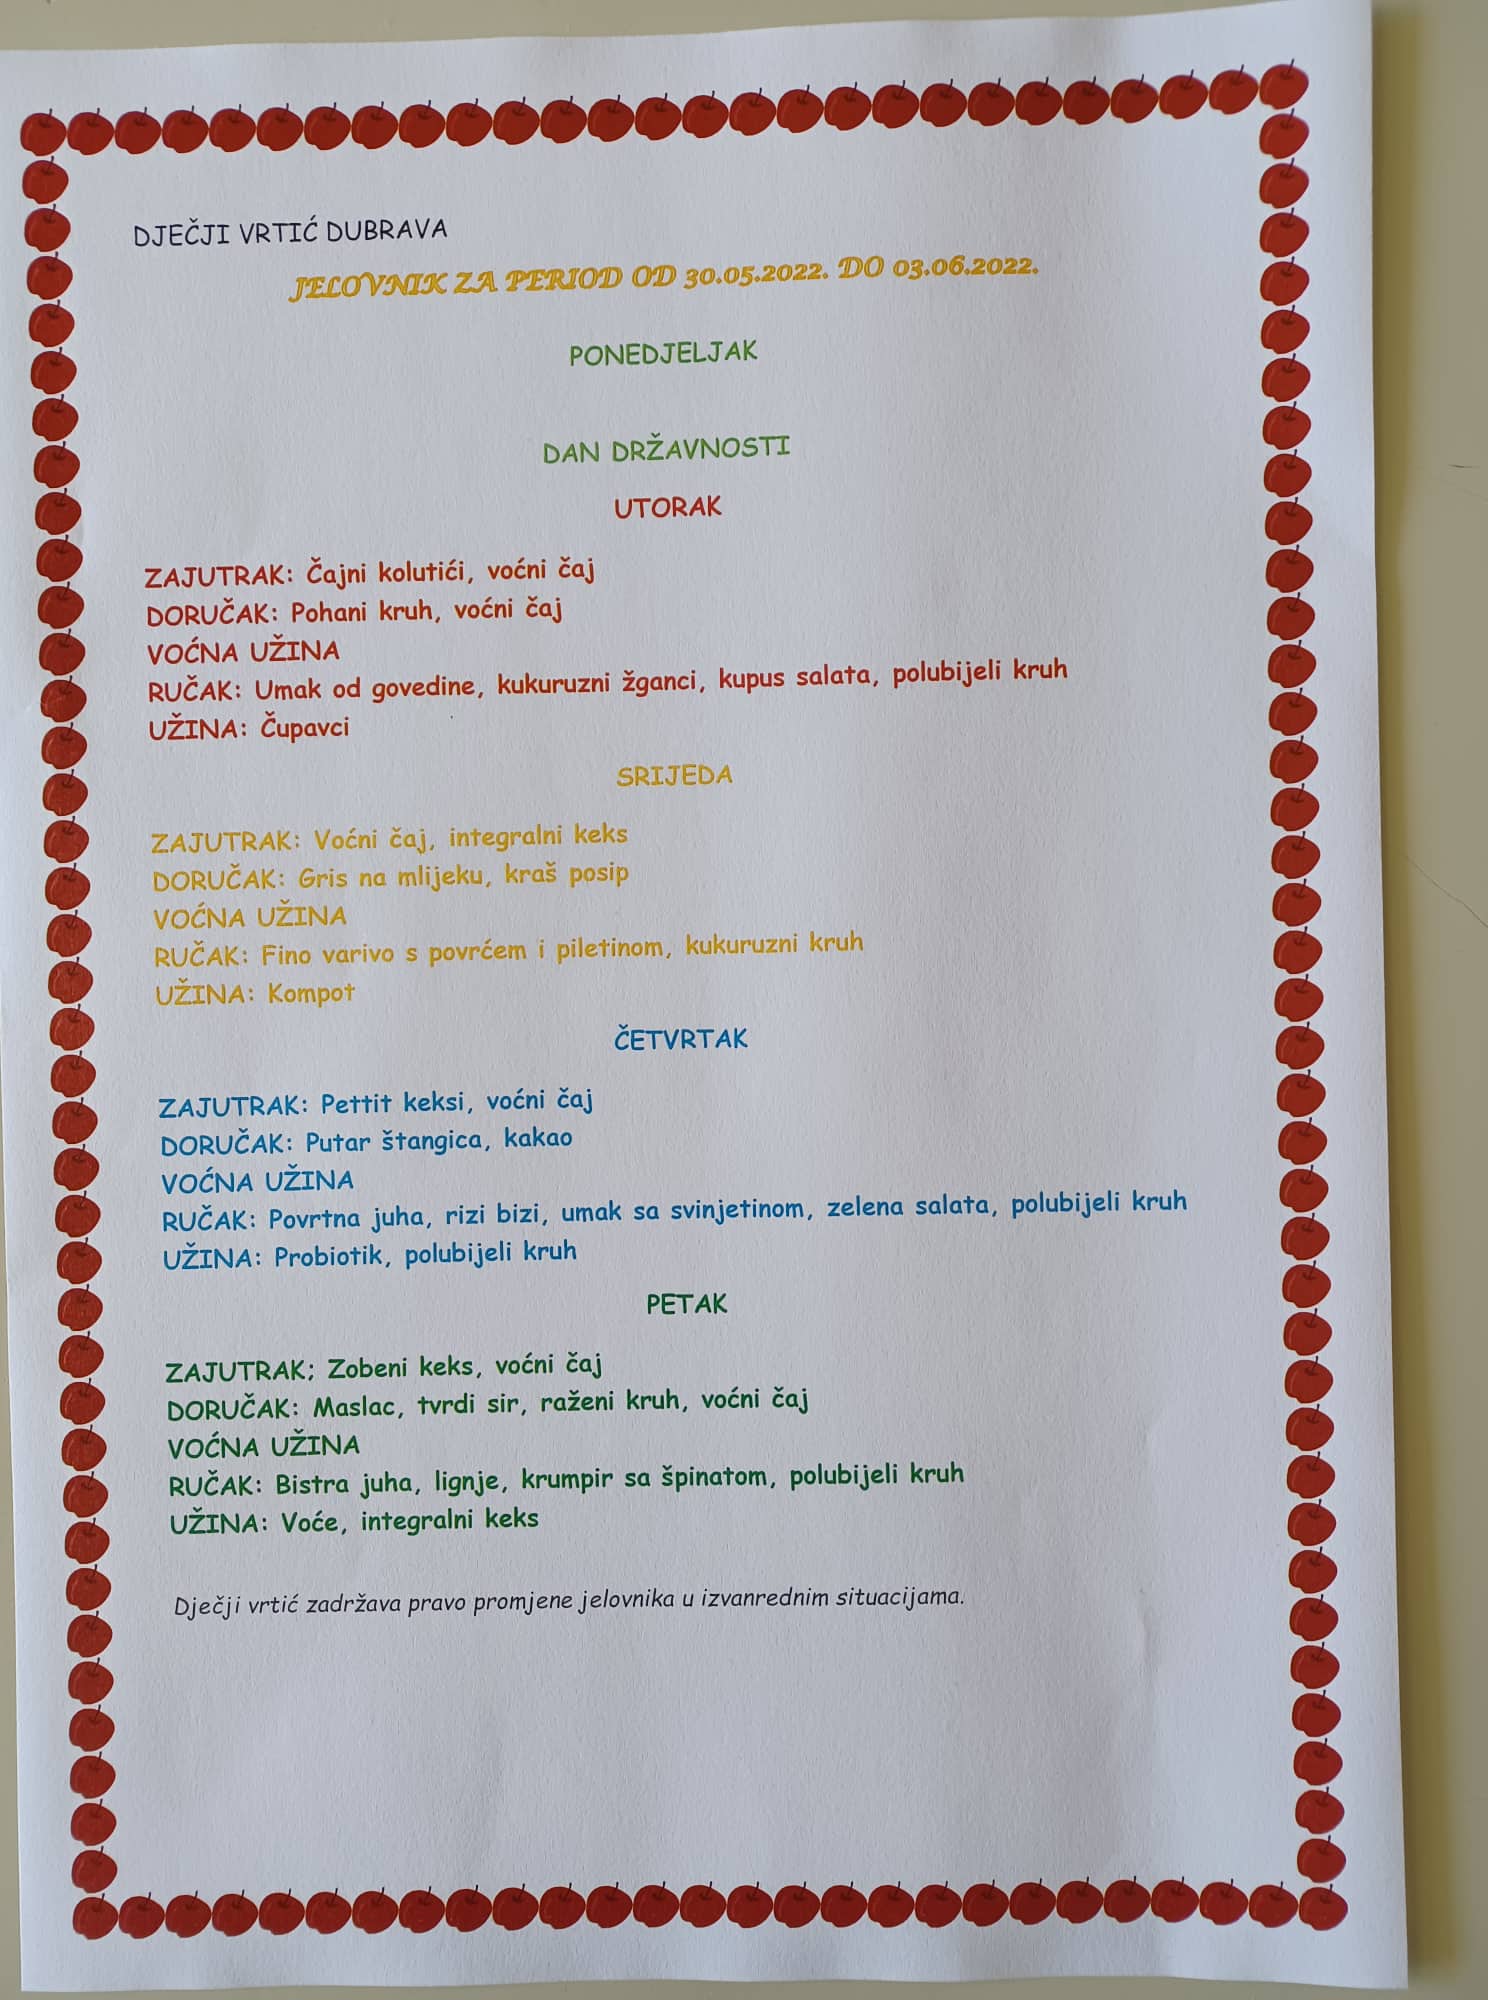 DJEČJI VRTIĆ DUBRAVA
JELOVNIK ZA PERIOD OD 30.05.2022. DO 03.06.2022.
PONEDJELJAK
DAN DRŽAVNOSTI
UTORAK
ZAJUTRAK: Čajni kolutići, voćni čaj
DORUČAK: Pohani kruh, voćni čaj
VOĆNA UŽINA
RUČAK: Umak od govedine, kukuruzni žganci, kupus salata, polubijeli kruh
UŽINA: Čupavci
SRIJEDA
ZAJUTRAK: Voćni čaj, integralni keks
DORUČAK: Gris na mlijeku, kraš posip
VOĆNA UŽINA
RUČAK: Fino varivo s povrćem i piletinom, kukuruzni kruh
UŽINA: Kompot
ČETVRTAK
ZAJUTRAK: Pettit keksi, voćni čaj
DORUČAK: Putar štangica, kakao
VOĆNA UŽINA
RUČAK: Povrtna juha, rizi bizi, umak sa svinjetinom, zelena salata, polubijeli kruh
UŽINA: Probiotik, polubijeli kruh
PETAK
ZAJUTRAK; Zobeni keks, voćni čaj
DORUČAK: Maslac, tvrdi sir, raženi kruh, voćni čaj
VOĆNA UŽINA
RUČAK: Bistra juha, lignje, krumpir sa špinatom, polubijeli kruh
UŽINA: Voće, integralni keks
Dječji vrtić zadržava pravo promjene jelovnika u izvanrednim situacijama.